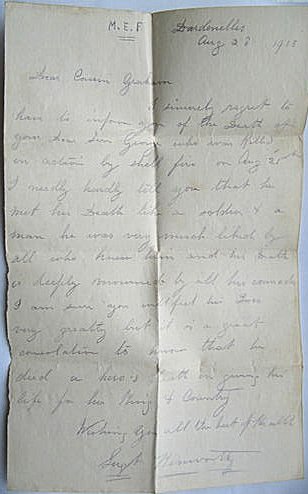 M.E.F
Dardenelles
Aug 28 1915
Dear Cousin Graham
I sincerely regret to
have to inform you of the Death of
your Son George who was killed
in action by shell fire on Aug
I needly hardly tell you that he
met his Death like a soldier & a
man he was very much liked by
all who knew him and his Death
is deeply mourned by all his comrades
I am sure you will feel his Loss
very greatly but it is a great
consolation to know that he
died a hero's Death in giving his
life for his King & Country
Wishing you all the best of
Sergt